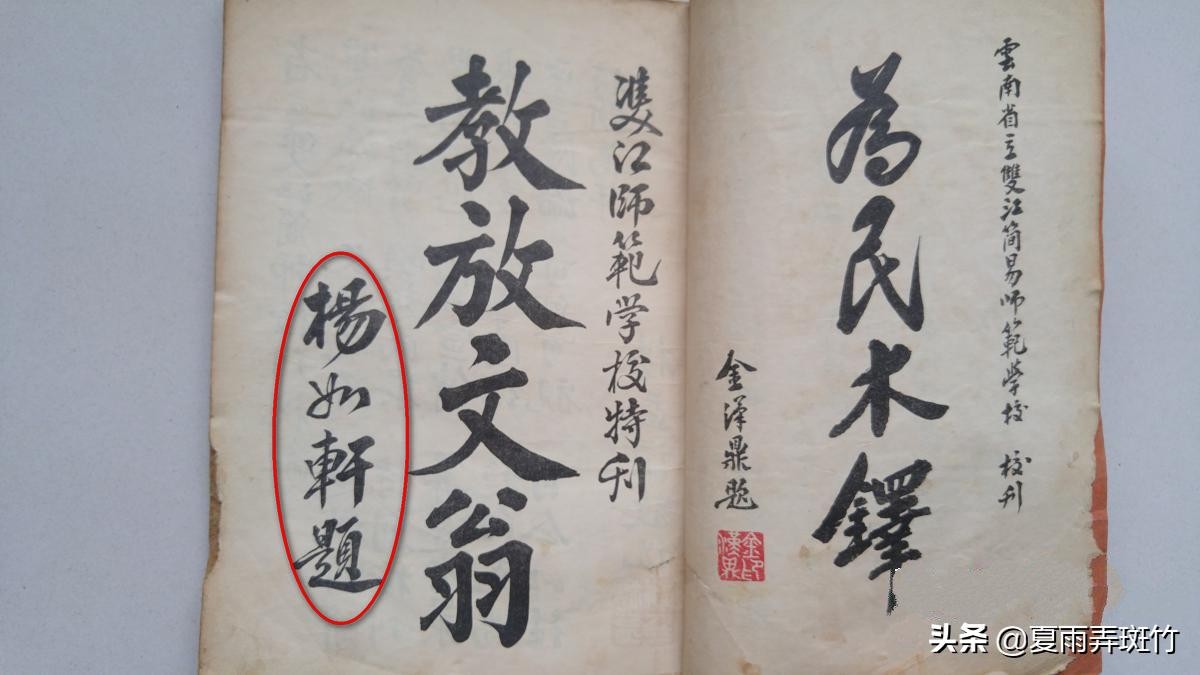 雲南省立雙江简易师範學校 校刊
為民木鐸
金漢鼎题
金漢鼎印
雙江師範学校特刊
教放文翁
楊如軒題
头条 @夏雨弄斑竹